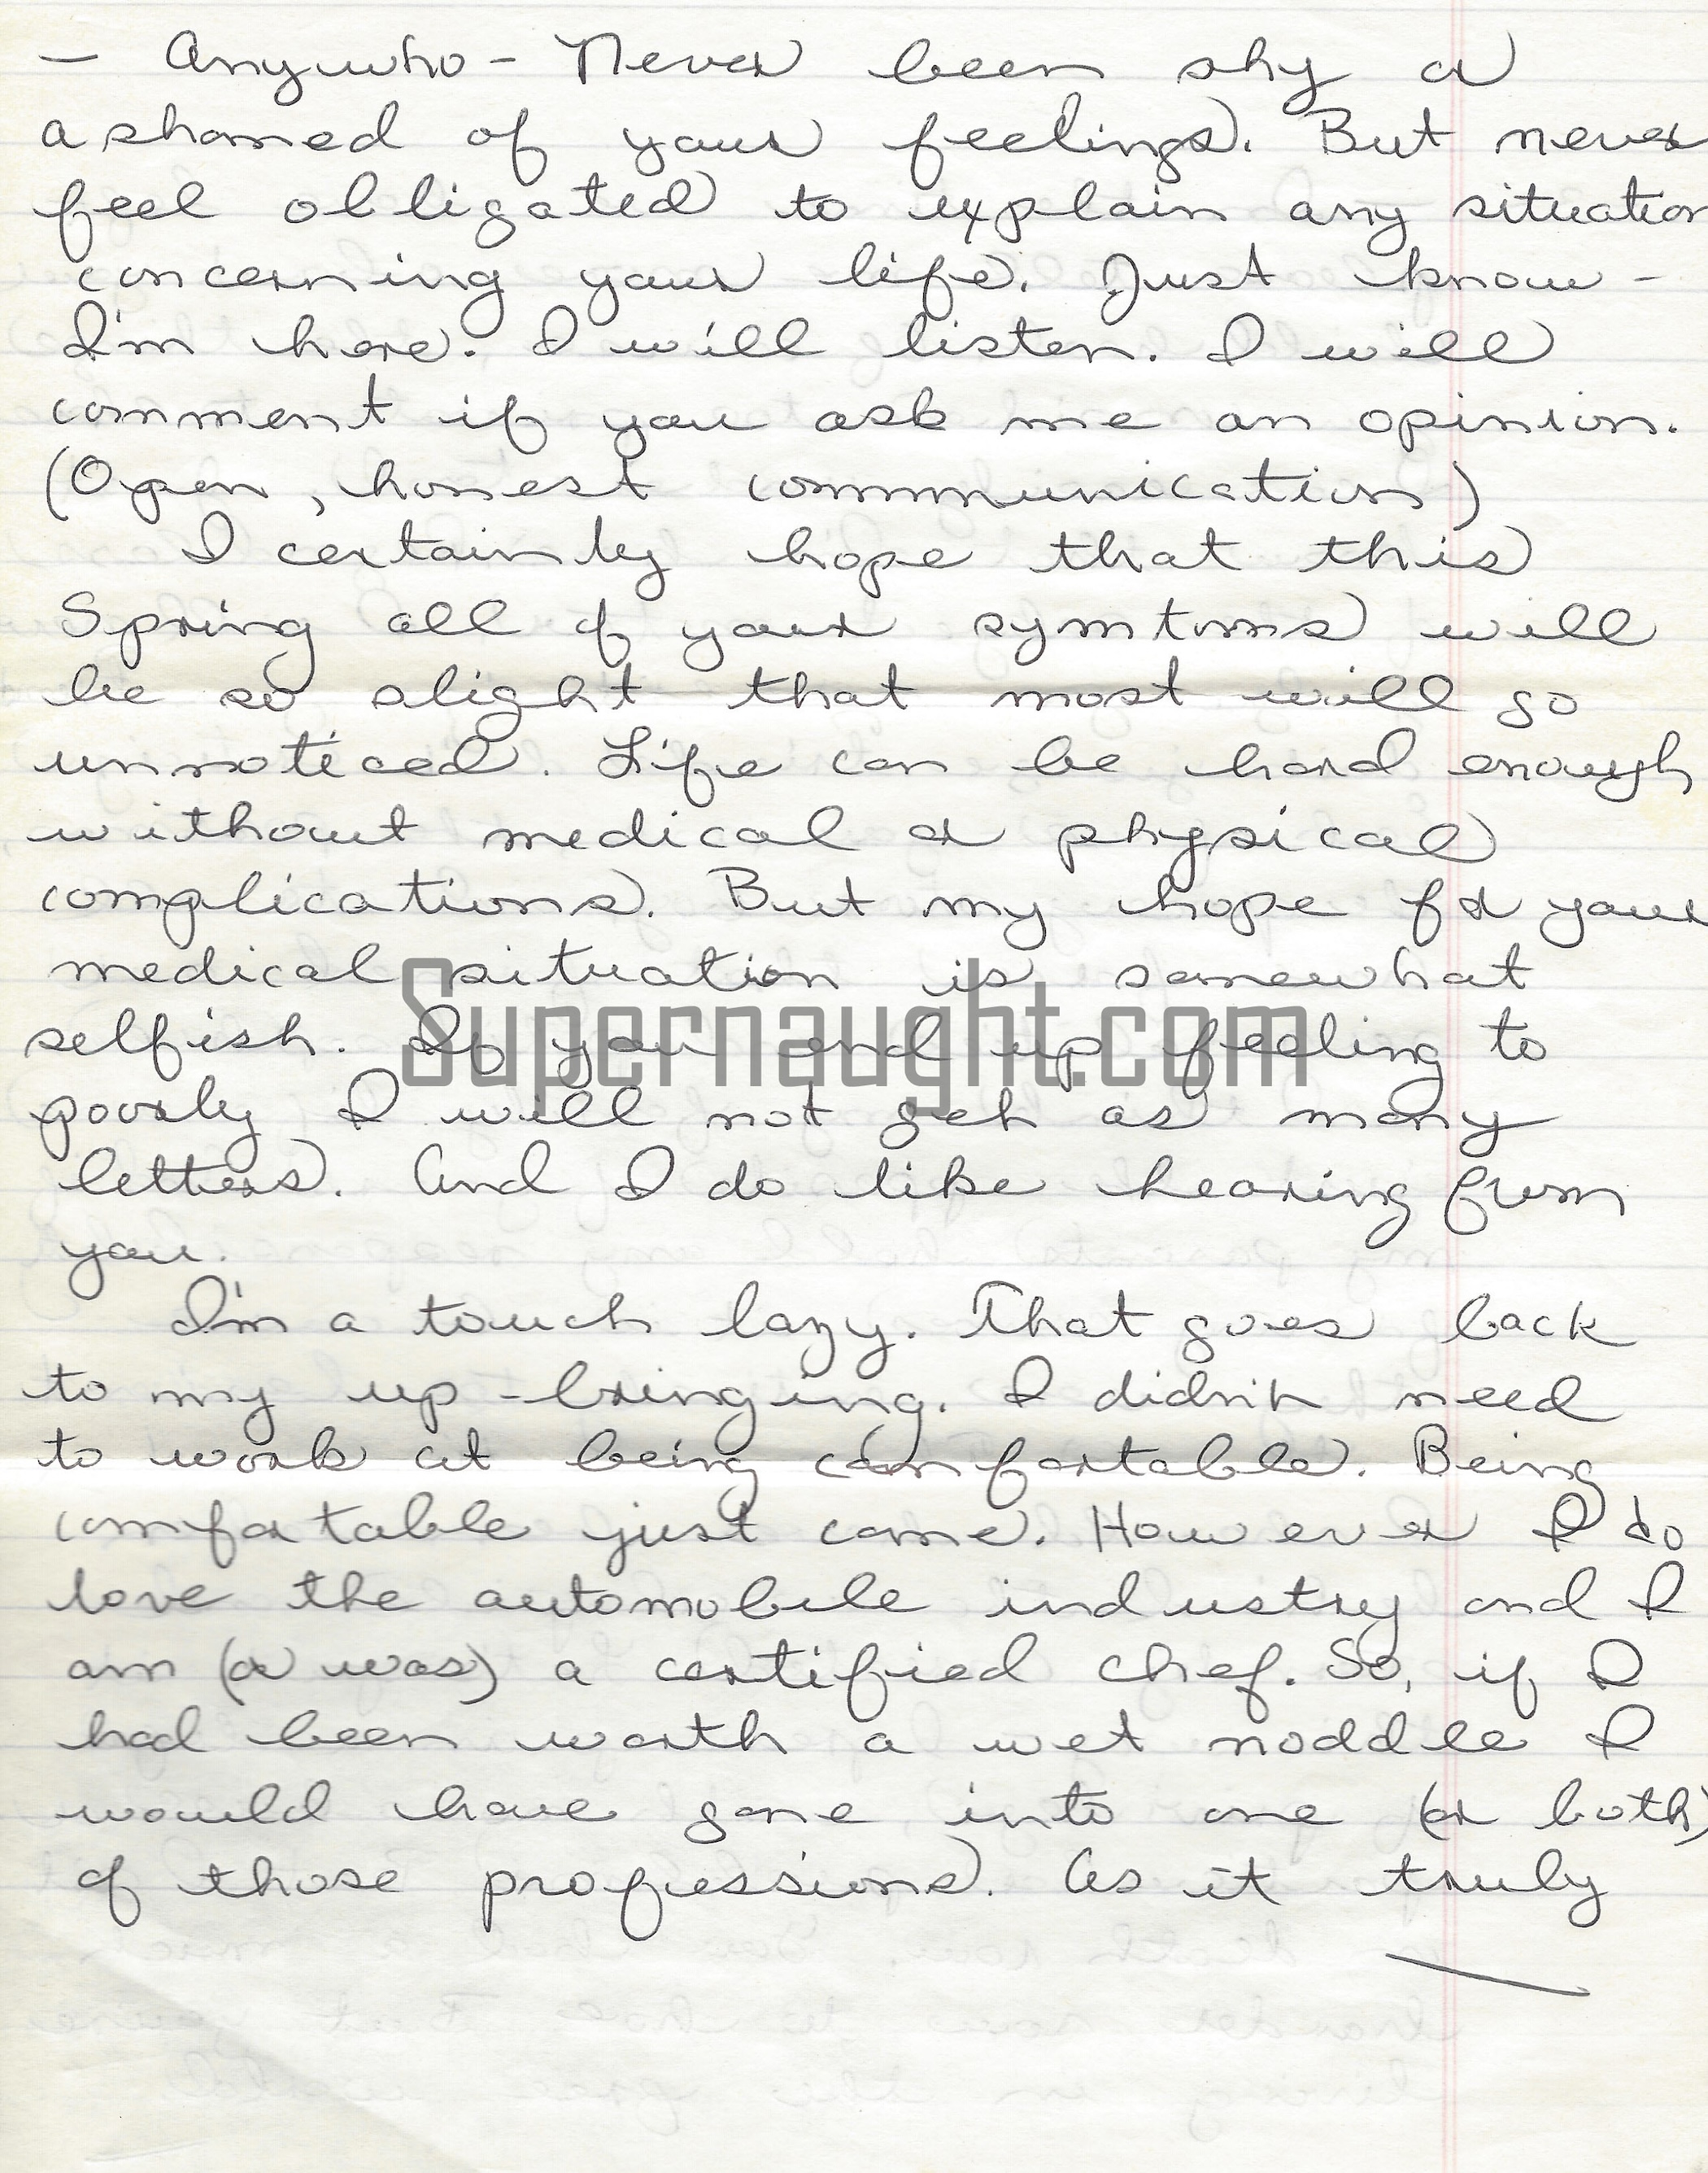 — Anywho - Never been shy or
ashamed of your feelings. But never
feel obligated to explain any situation
concerning your life. Just know -
I'm here. I will listen. I will
comment if you ask me an opinion.
(Open, honest communication)
I certainly hope that this
Spring all of your symtoms will
be so slight that most will go
unnoticed. Life can be hard enough
without medical or physical
complications. But my hope for your
medical situation is somewhat
selfish. If you end up feeling to
poorly I will not get as many
letters. And I do like hearing from
you.
I'm a touch lazy. That goes back
to my up-bringing. I didn't need
to work at being comfortable. Being
comfortable just came. However I do
love the automobile industry and I
am (or was) a certified chef. So, if I
had been worth a wet noddle I
would have gone into one (or both)
of those professions. As it truly
Supernaught.com